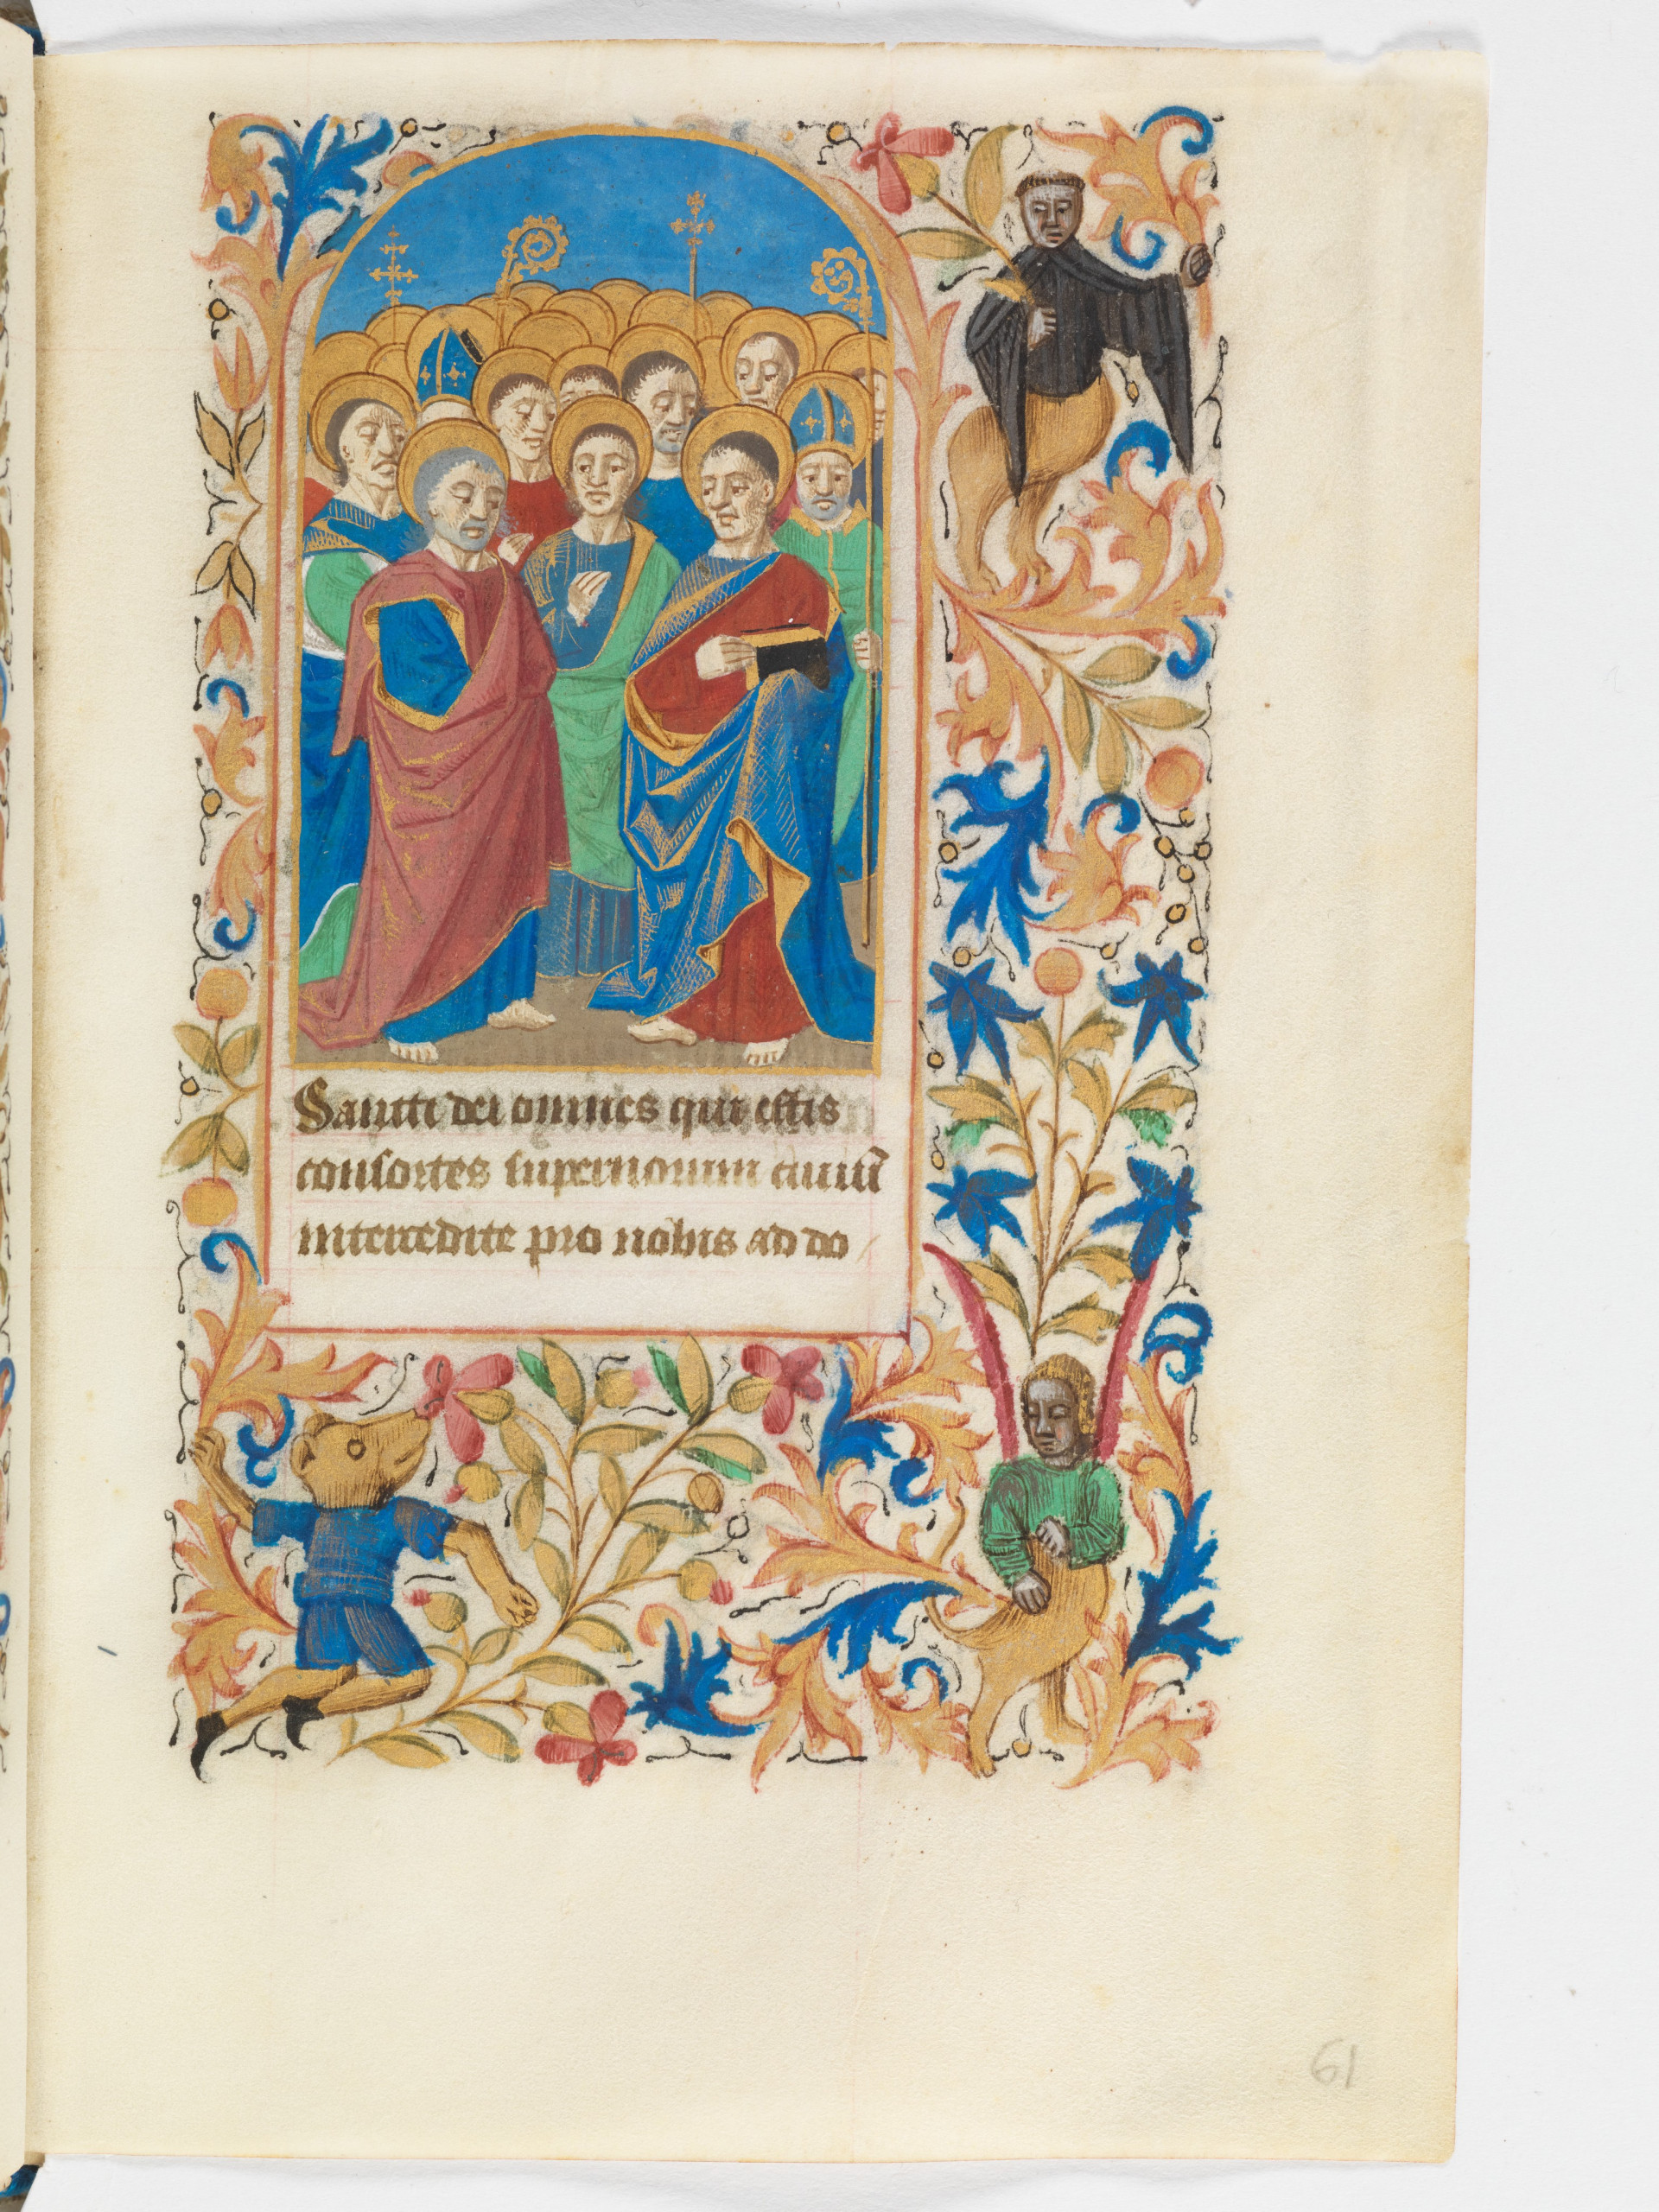 Sancti dei omnes qui estis
consortes supernorum ciuiũ
intercedite pro nobis ad do
61